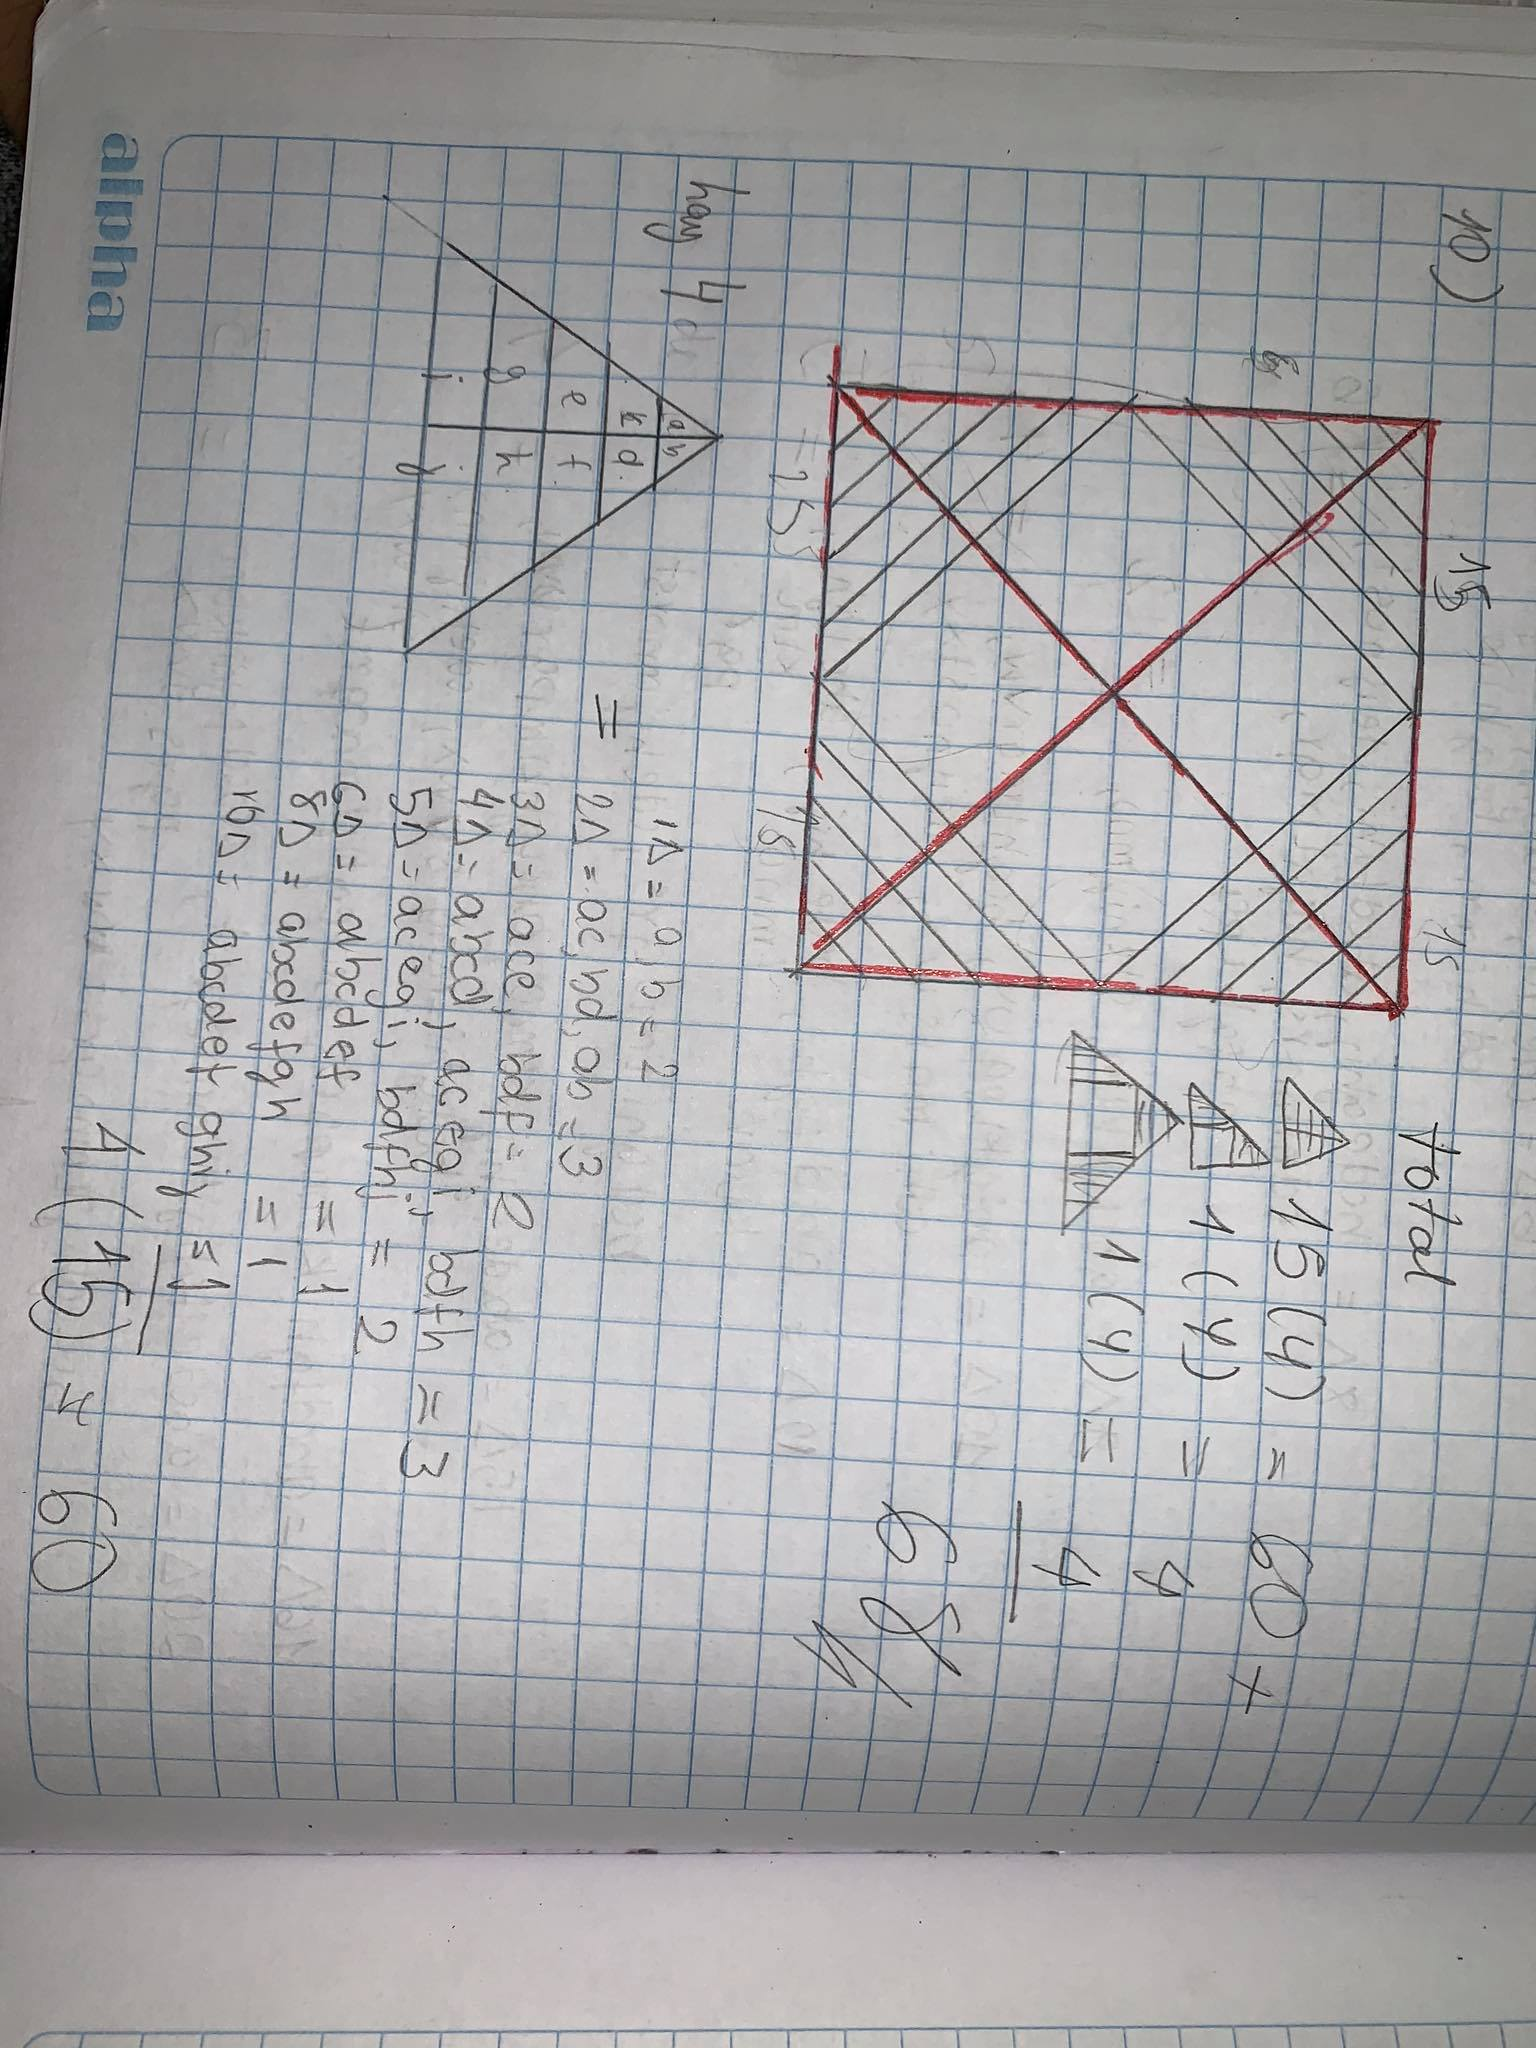 10)
15
15
15
Total
15(4) = 60 +
1(4) = 4
1(4) = 4
68
hay 4 de
a b
c d
e f
g h
i j
=
1Δ = a, b = 2
2Δ = ac, bd, ab = 3
3Δ = ace, bdf = 2
4Δ = abcd, acegi, bdfh = 3
5Δ = acegi, bdfhj = 2
6Δ = abcdef = 1
8Δ = abcdefgh = 1
10Δ = abcdefghij = 1
4(15) = 60
alpha